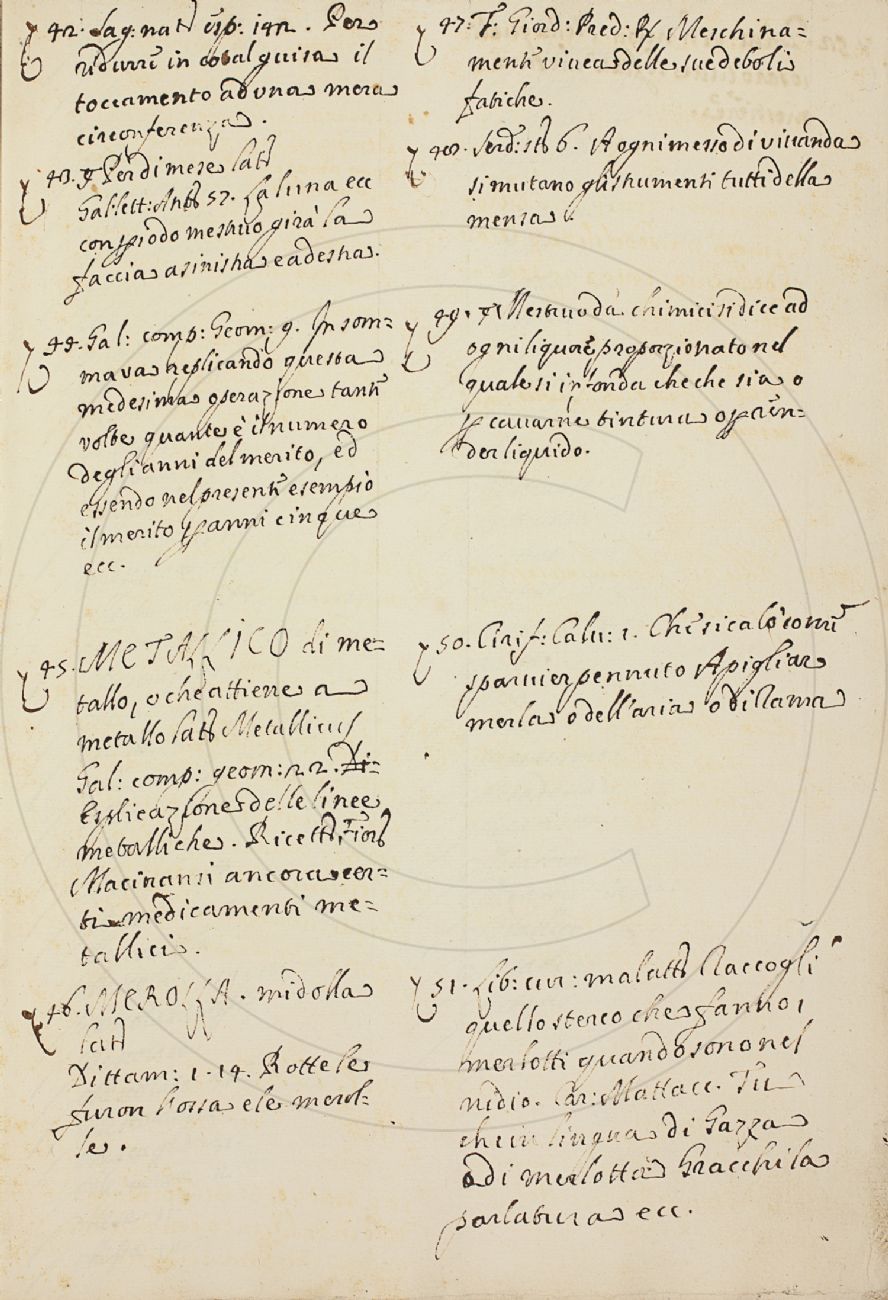 42. Sag: nat. esp: 142. Per
ridurre in cotal guisa il
toccamento ad una mera
circonferenza.
43. Per di mese lat.
Gal: lett: 57. La luna ecc
con periodo mestruo gira la
faccia a sinistra e a destra.
44. Gal: comp: Geom: 9. In som=
ma va replicando questa
medesima operazione tante
volte quante è il numero
degli anni del merito, ed
essendo nel presente esempio
il merito per anni cinque
ecc.
45. METALLICO di me=
tallo, o che attiene a
metallo lat. Metallicus
Gal: comp: geom: 22. Di=
Esplicazione delle linee
metalliche. Ricett. Fior.
Macinansi ancora cer=
ti medicamenti me=
tallici.
46. MEROLLA. midolla
lat.
Dittam: 1. 14. Rotte le
furon l'ossa e le merol=
le.
47. F. Giord: Pred: R. Meschina=
mente vivea delle sue deboli
fatiche.
48. Serd: st. 6. A ogni messo di vivanda
si mutano gli strumenti tutti della
mensa.
49. Mestruo da' chimici si dice ad
ogni liquore proporzionato nel
quale si infonda che che sia o
per cavarne tintura o per ren=
der liquido.
50. Cirif: Calv: 1. Che si calò come
sparvier pennuto A pigliar
merla o dell'aria o di rama
51. Lib: cur: malatt. Raccogli
quello sterco che fanno i
merlotti quando sono nel
nidio. Car: Mattacc. Tu
che in lingua di Gazza
o di merlotta Gracchi la
parlatura ecc.